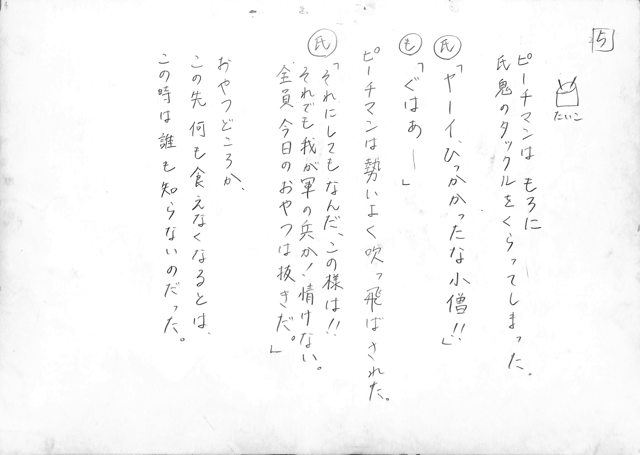 5
たいこ
ピーチマンは もろに
氏鬼のタックルをくらってしまった。
氏「ヤーイ、ひっかかったな小僧!!」
も「ぐはあー」
ピーチマンは勢いよく吹っ飛ばされた。
氏「それにしてもなんだ、この様は!!
それでも我が軍の兵か!情けない。
全員 今日のおやつは抜きだ。」
おやつどころか、
この先 何も食えなくなるとは、
この時は誰も知らないのだった。